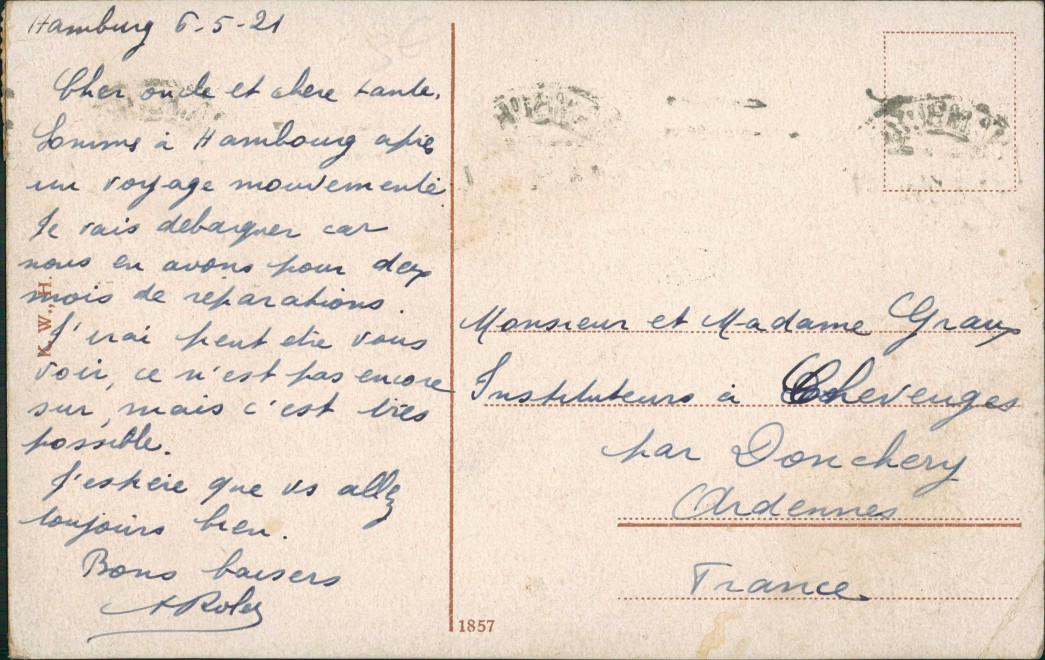 Hamburg 6-5-21
Cher oncle et chere tante,
Sommes à Hambourg après
un voyage mouvementé
Je vais debarquer car
nous en avons pour deux
mois de réparations.
J'irai peut etre vous
voir, ce n'est pas encore
sur, mais c'est très
possible.
J'espère que vs allez
toujours bien.
Bons baisers
K.W., H.
1857
Monsieur et Madame Graux
Instituteurs à Chevenges
par Donchery
Ardennes
France